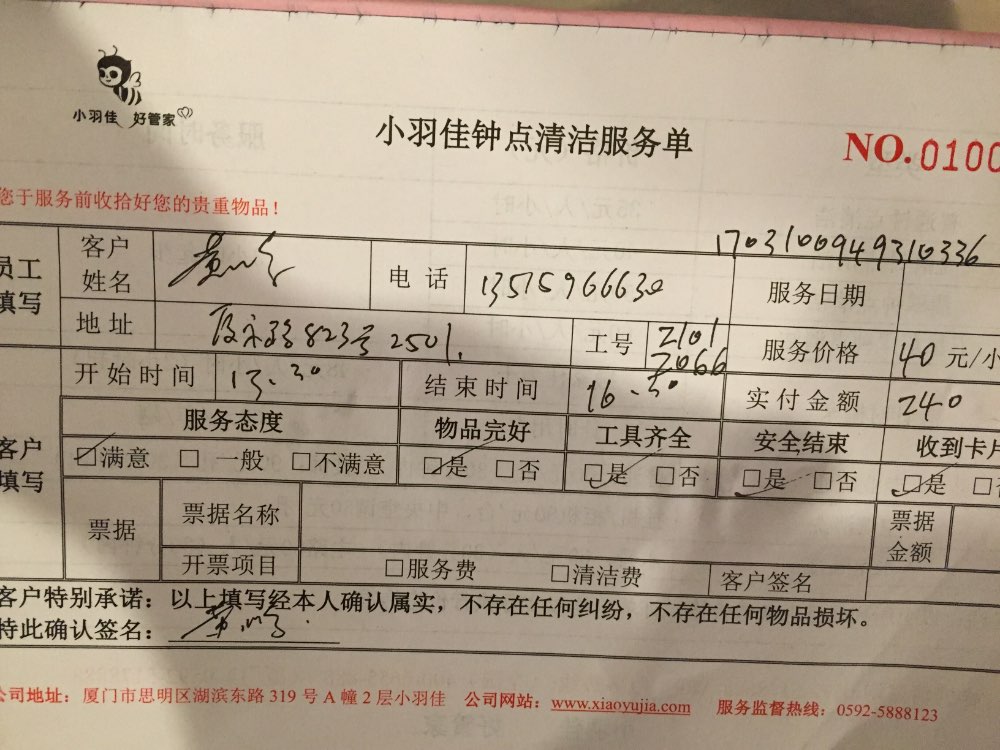 小羽佳 好管家
小羽佳钟点清洁服务单
NO.0100
您于服务前收拾好您的贵重物品！
1703100949310336
员工填写 客户姓名 电话 13515966630 服务日期
地址 823号2501. 工号 2101 2066 服务价格 40 元/小
客户填写 开始时间 13.30 结束时间 16.30 实付金额 240
服务态度 物品完好 工具齐全 安全结束 收到卡片
☑满意 □一般 □不满意 ☑是 □否 ☑是 □否 ☑是 □否 ☑是
票据 票据名称 票据金额
开票项目 □服务费 □清洁费 客户签名
客户特别承诺：以上填写经本人确认属实，不存在任何纠纷，不存在任何物品损坏。
特此确认签名：
公司地址：厦门市思明区湖滨东路 319 号 A 幢 2 层小羽佳 公司网站：www.xiaoyujia.com 服务监督热线：0592-5888123